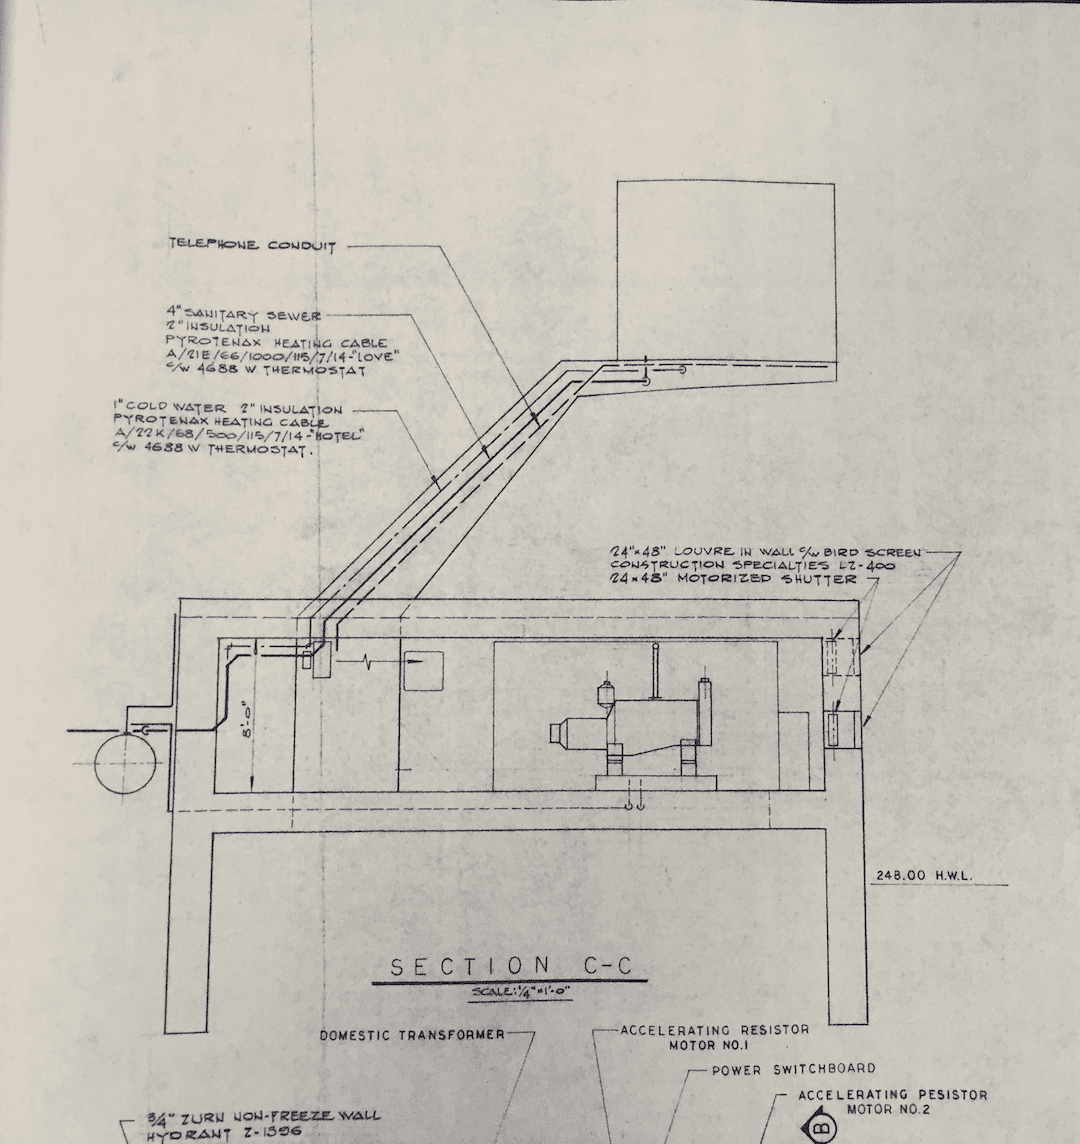 TELEPHONE CONDUIT
4" SANITARY SEWER
2" INSULATION
PYROTENAX HEATING CABLE
A/21E/66/1000/115/7/14-"LOVE"
C/W 4688 W THERMOSTAT
1" COLD WATER 2" INSULATION
PYROTENAX HEATING CABLE
A/22K/68/500/115/7/14-"HOTEL"
C/W 4688 W THERMOSTAT.
24"x48" LOUVRE IN WALL C/W BIRD SCREEN
CONSTRUCTION SPECIALTIES LZ-400
24x48" MOTORIZED SHUTTER
8'-0"
248.00 H.W.L.
SECTION C-C
SCALE: 1/4"=1'-0"
DOMESTIC TRANSFORMER
ACCELERATING RESISTOR
MOTOR NO.1
POWER SWITCHBOARD
ACCELERATING RESISTOR
MOTOR NO.2
B
3/4" ZURN NON-FREEZE WALL
HYDRANT Z-1396